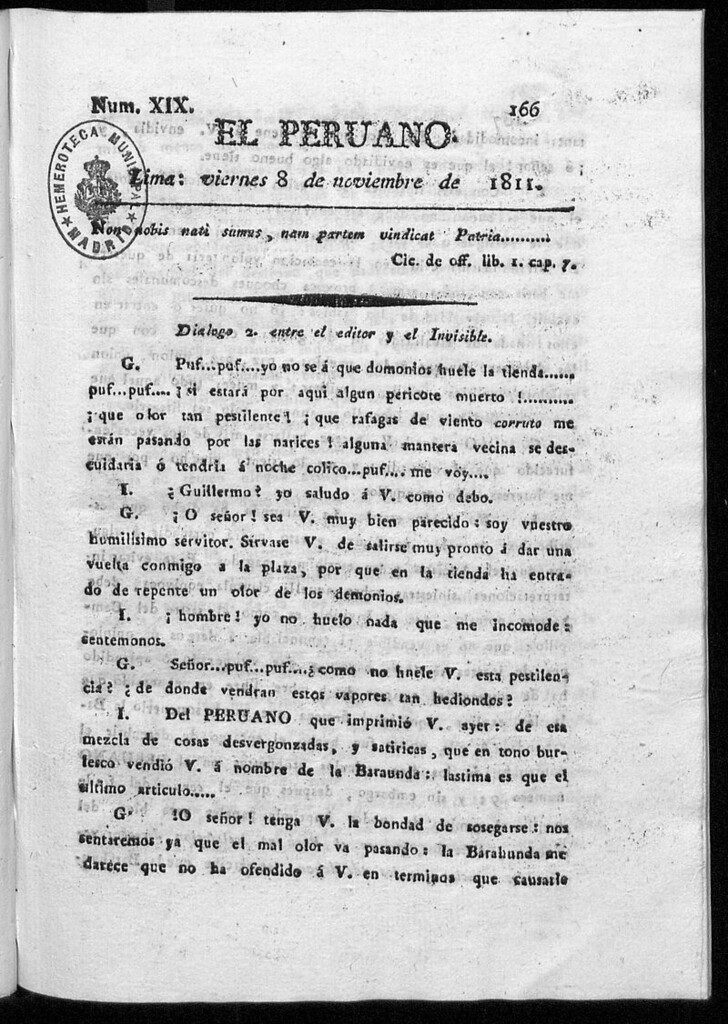 Num. XIX.
166
EL PERUANO.
HEMEROTECA MUNICIPAL
★ MADRID ★
Lima: viernes 8 de noviembre de 1811.
Non nobis nati sumus, nam partem vindicat Patria..........
Cic. de off. lib. 1. cap. 7.
Dialogo 2. entre el editor y el Invisible.
G. Puf...puf....yo no se á que domonios huele la tienda......
puf...puf.... ¡si estará por aqui algun pericote muerto!..........
¡que olor tan pestilente! ¡que rafagas de viento corruto me
están pasando por las narices! alguna mantera vecina se des-
cuidaria ó tendria á noche colico...puf.... me voy....
I. ¿Guillermo? yo saludo á V. como debo.
G. ¡O señor! sea V. muy bien parecido: soy vuestro
humilísimo servitor. Sírvase V. de salirse muy pronto á dar una
vuelta conmigo a la plaza, por que en la tienda ha entra-
do de repente un olor de los demonios.
I. ¡hombre! yo no huelo nada que me incomode:
sentemonos.
G. Señor...puf...puf....¿como no huele V. esta pestilen-
cia? ¿de donde vendran estos vapores tan hediondos?
I. Del PERUANO que imprimió V. ayer: de esa
mezcla de cosas desvergonzadas, y satiricas, que en tono bur-
lesco vendió V. á nombre de la Baraunda: lastima es que el
último articulo.....
G. !O señor! tenga V. la bondad de sosegarse: nos
sentaremos ya que el mal olor va pasando: la Barahunda me
parece que no ha ofendido á V. en terminos que causarle